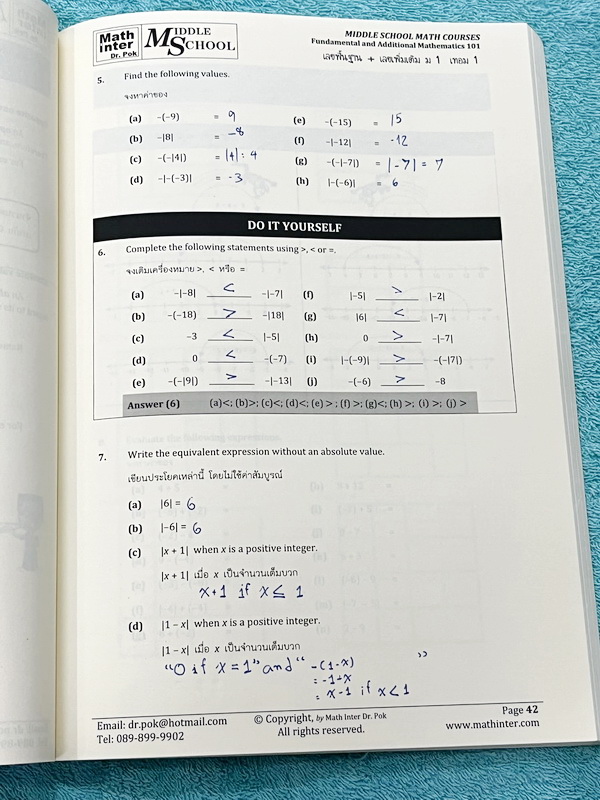 Math Inter Dr. Pok MIDDLE SCHOOL
MIDDLE SCHOOL MATH COURSES
Fundamental and Additional Mathematics 101
เลขพื้นฐาน + เลขเพิ่มเติม ม 1 เทอม 1
5. Find the following values.
จงหาค่าของ
(a) -(-9) = 9 (e) -(-15) = 15
(b) -|8| = -8 (f) -|-12| = -12
(c) -(-|4|) = |4| = 4 (g) -(-|-7|) = |-7| = 7
(d) -|-(-3)| = -3 (h) |-(-6)| = 6
DO IT YOURSELF
6. Complete the following statements using >, < or =.
จงเติมเครื่องหมาย >, < หรือ =
(a) -|-8| < -|-7| (f) |-5| > |-2|
(b) -(-18) > -|18| (g) |6| < |-7|
(c) -3 < |-5| (h) 0 > -|-7|
(d) 0 < -(-7) (i) |-(-9)| > -(-|7|)
(e) -(-|9|) > -|-13| (j) -(-6) > -8
Answer (6) (a)<; (b)>; (c)<; (d)<; (e) > ; (f) >; (g)<; (h) >; (i) >; (j) >
7. Write the equivalent expression without an absolute value.
เขียนประโยคเหล่านี้ โดยไม่ใช้ค่าสัมบูรณ์
(a) |6| = 6
(b) |-6| = 6
(c) |x + 1| when x is a positive integer.
|x + 1| เมื่อ x เป็นจำนวนเต็มบวก
x+1 if x ≤ 1
(d) |1 - x| when x is a positive integer.
|1 - x| เมื่อ x เป็นจำนวนเต็มบวก
"0 if x = 1" and " -(1-x) "
= -1+x
= x-1 if x < 1
Email: dr.pok@hotmail.com © Copyright, by Math Inter Dr. Pok Page 42
Tel: 089-899-9902 All rights reserved. www.mathinter.com